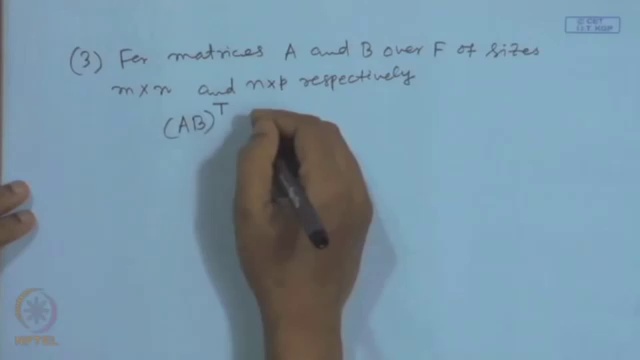 © CET
I.I.T. KGP
(3) For matrices A and B over F of sizes
m×n and n×p respectively
(AB)^T
NPTEL